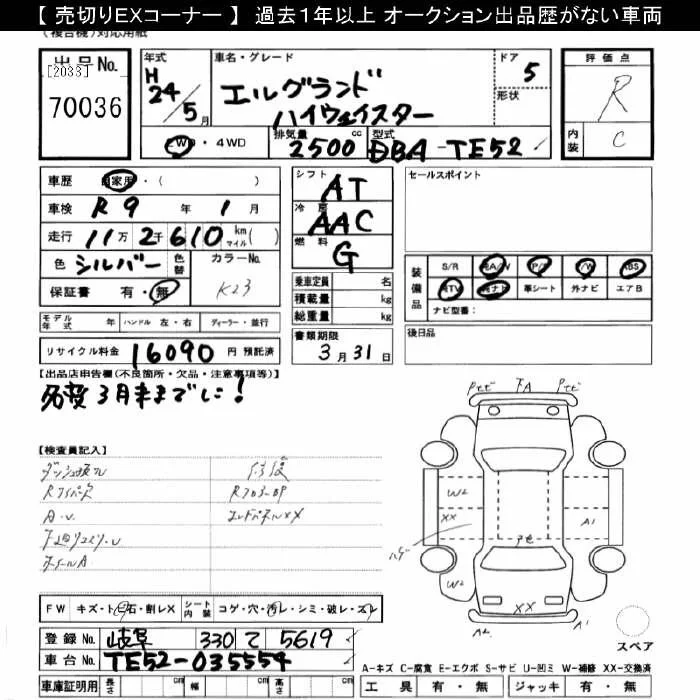 【 売切りEXコーナー 】 過去1年以上 オークション出品歴がない車両
(複合機)対応用紙
出品No.
[2033]
70036
年式
H
24
5月
車名・グレード
エルグランド
ハイウェイスター
ドア
5
形状
評価点
R
内装
C
2WD・4WD
排気量
2500
cc
型式
DBA-TE52
車歴
自家用・( )
車検
R 9 年 1 月
走行
11万 2千 610
km
マイル
( )
色
シルバー
色替
カラーNo.
K23
保証書
有・無
シフト
AT
冷房
AAC
燃料
G
乗車定員
名
積載量
kg
総重量
kg
書類期限
3月31日
セールスポイント
装備品
S/R
P/S
P/W
ABS
RTV
革シート
外ナビ
エアB
ナビ型番:
後日品
モデル年式
年
ハンドル
左・右
ディーラー・並行
リサイクル料金
16090
円 預託済
【出品店申告欄(不良箇所・欠品・注意事項等)】
名変3月末までに!
【検査員記入】
FW
シート内装
コゲ・穴・汚レ・シミ・破レ・スレ
登録No.
岐阜 330 て 5619
車台No.
TE52-035554
車庫証明用
長さ
幅
高さ
FA
W2
XX
A1
ハゲ
W2
XX
A2
A1
スペア
A-キズ C-腐食 E-エクボ S-サビ U-凹ミ W-補修 XX-交換済
工具
有・無
ジャッキ
有・無